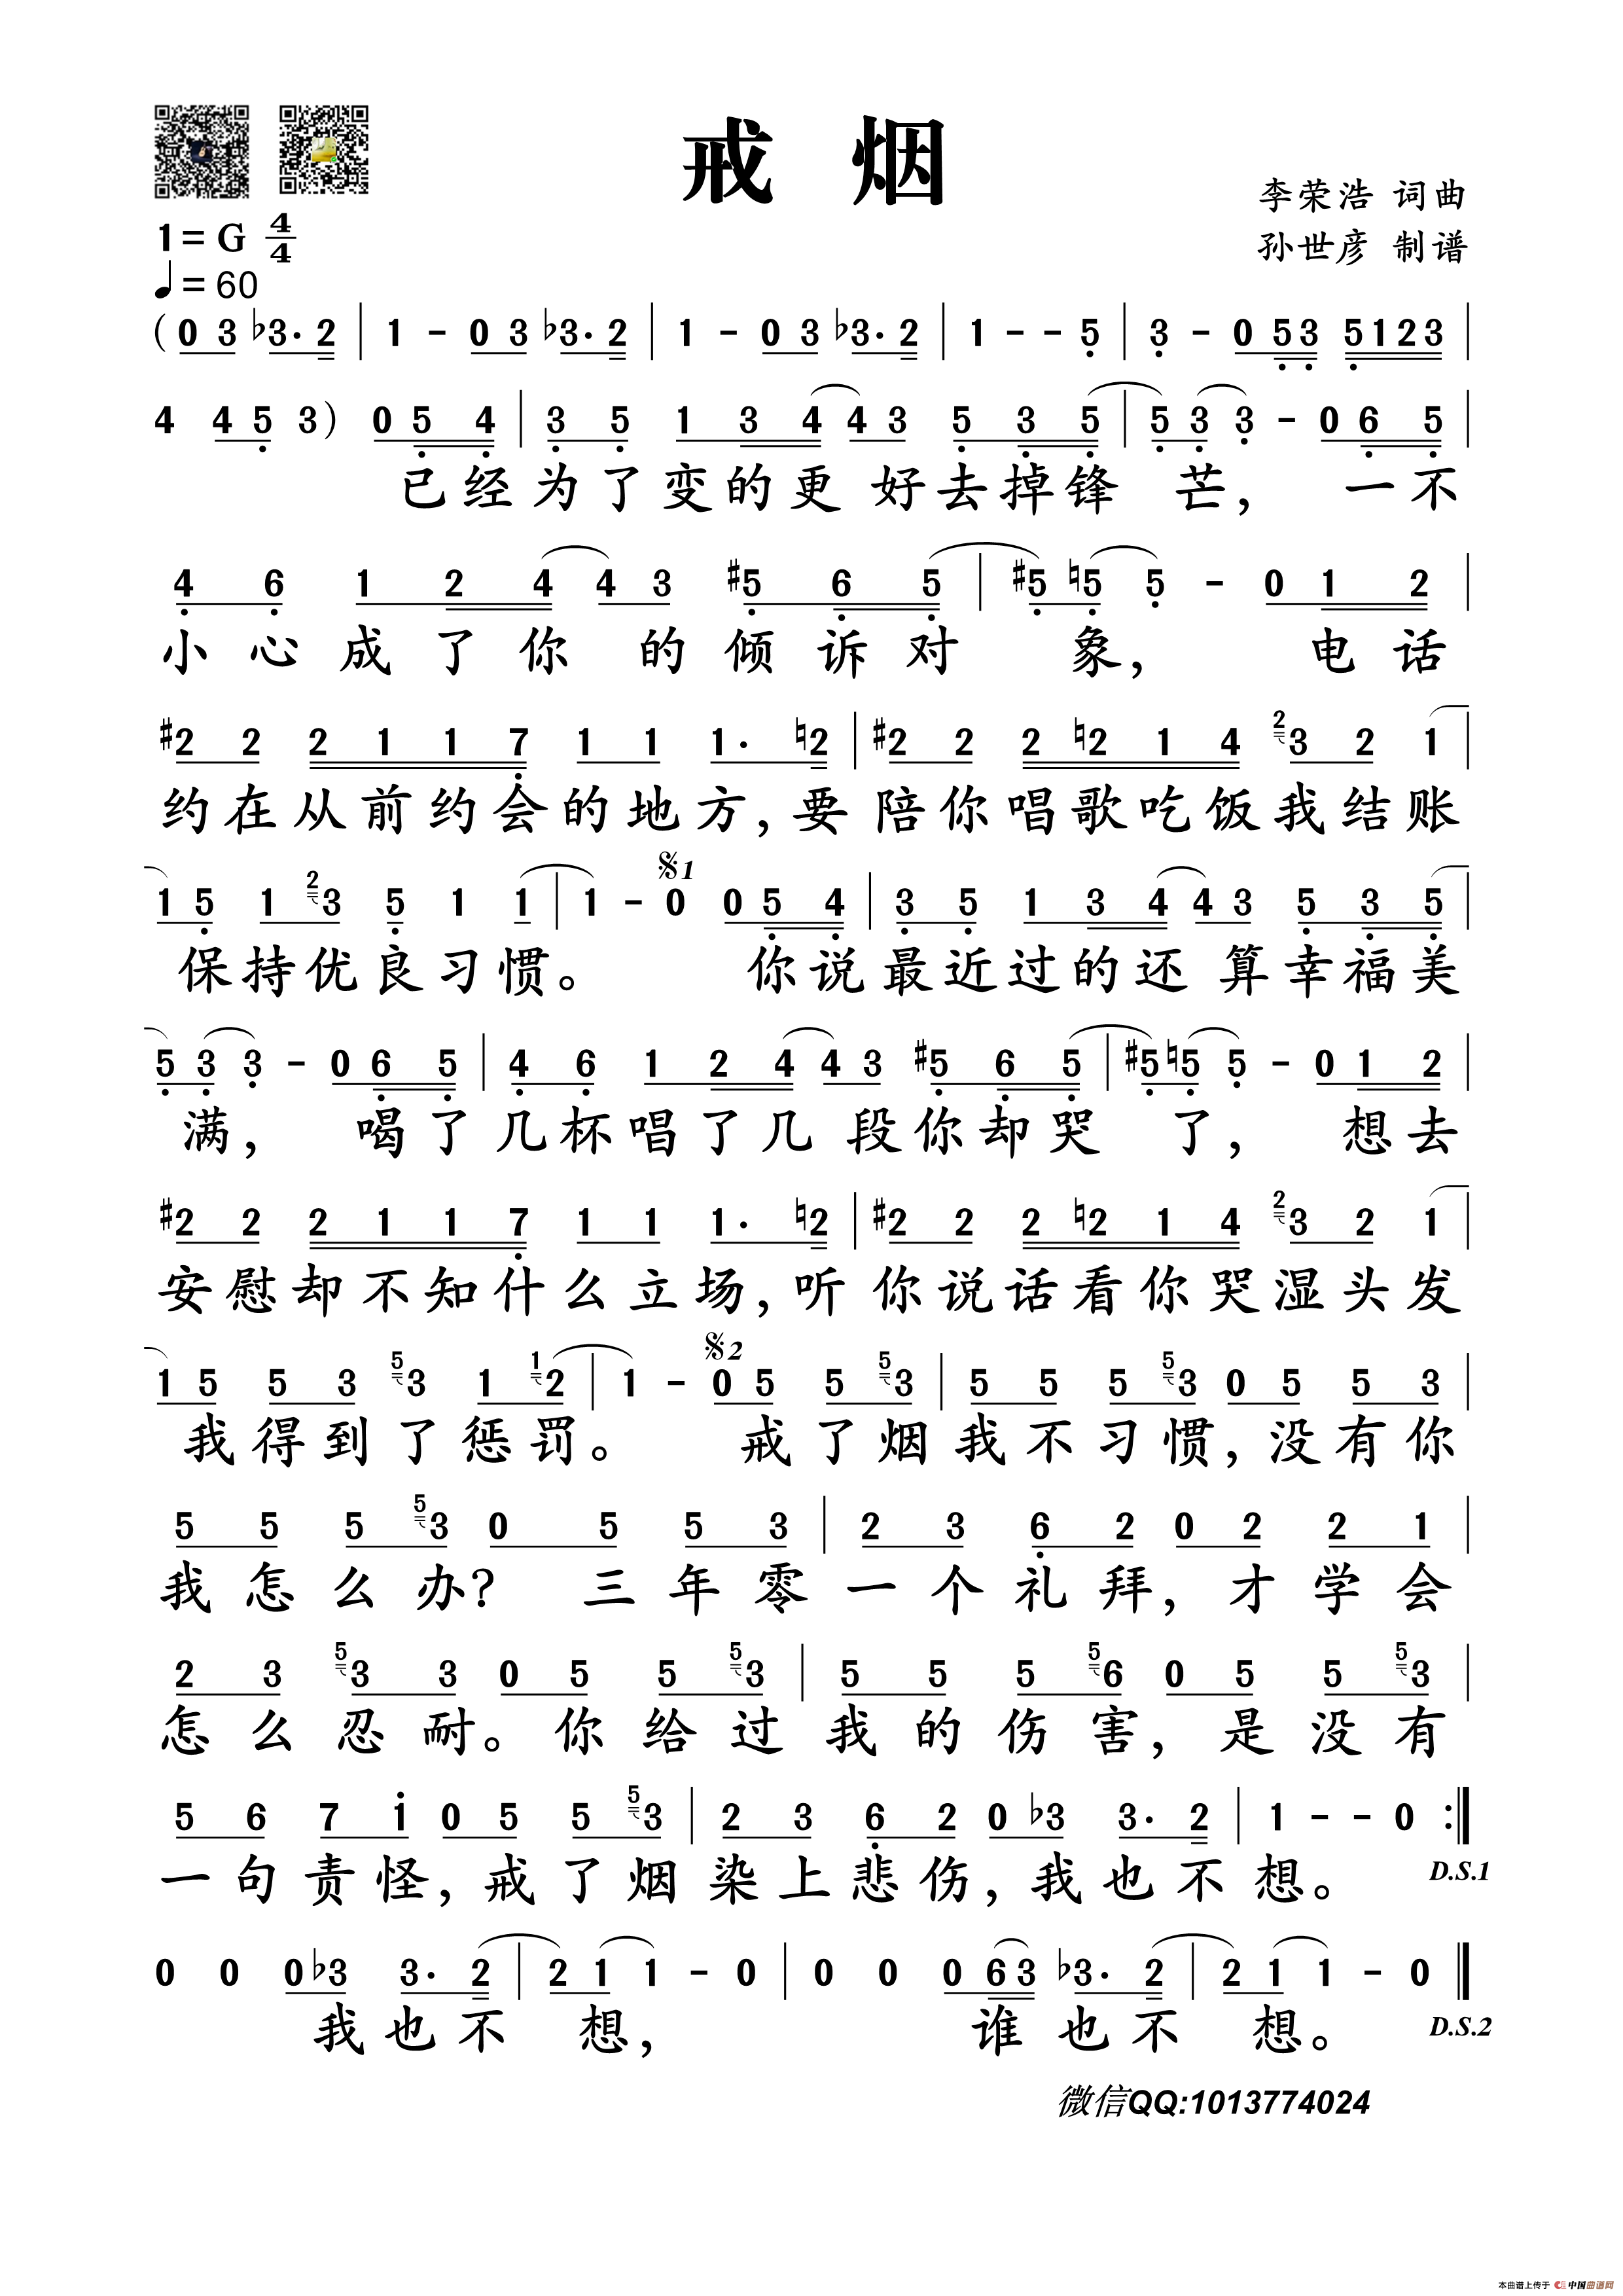 戒 烟
李荣浩 词曲
孙世彦 制谱
1= G 4/4
♩= 60
(0 3 ♭3· 2 | 1 - 0 3 ♭3· 2 | 1 - 0 3 ♭3· 2 | 1 - - 5 | 3 - 0 5 3 5 1 2 3 |
4 4 5 3) 0 5 4 | 3 5 1 3 4 4 3 5 3 5 | 5 3 3 - 0 6 5 |
已经为了变的更 好去掉锋 芒， 一不
4 6 1 2 4 4 3 #5 6 5 | #5 ♮5 5 - 0 1 2 |
小 心 成 了 你 的 倾 诉 对 象， 电 话
#2 2 2 1 1 7 1 1 1· ♮2 | #2 2 2 ♮2 1 4 2 3 2 1 |
约在从前约会的地方，要 陪你唱歌吃饭我结账
1 5 1 2 3 5 1 1 | 1 - 𝄋1 0 0 5 4 | 3 5 1 3 4 4 3 5 3 5 |
保持优良习惯。 你说最近过的还 算幸福美
5 3 3 - 0 6 5 | 4 6 1 2 4 4 3 #5 6 5 | #5 ♮5 5 - 0 1 2 |
满， 喝了几杯唱了几 段你却哭 了， 想去
#2 2 2 1 1 7 1 1 1· ♮2 | #2 2 2 ♮2 1 4 2 3 2 1 |
安慰却不知什么立场，听 你说话看你哭湿头发
1 5 5 3 5 3 1 1 2 | 1 - 𝄋2 0 5 5 5 3 | 5 5 5 5 3 0 5 5 3 |
我得到了惩罚。 戒了烟我不习惯，没有你
5 5 5 5 3 0 5 5 3 | 2 3 6 2 0 2 2 1 |
我怎么办? 三年零一个礼拜，才学会
2 3 5 3 3 0 5 5 5 3 | 5 5 5 5 6 0 5 5 5 3 |
怎么忍耐。你给过我的伤害，是没有
5 6 7 1 0 5 5 5 3 | 2 3 6 2 0 ♭3 3· 2 | 1 - - 0 :‖
一句责怪，戒了烟染上悲伤，我也不想。 D.S.1
0 0 0 ♭3 3· 2 | 2 1 1 - 0 | 0 0 0 6 3 ♭3· 2 | 2 1 1 - 0 ‖
我也不 想， 谁也不 想。 D.S.2
微信QQ:1013774024
本曲谱上传于 中国曲谱网